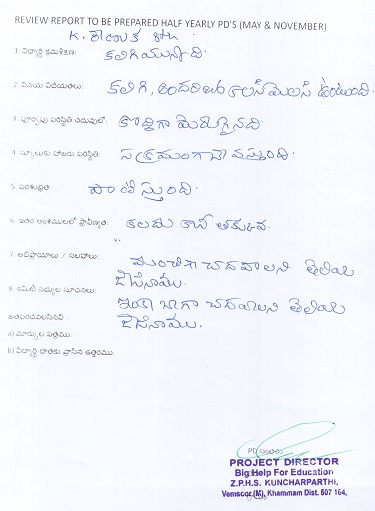 REVIEW REPORT TO BE PREPARED HALF YEARLY PD'S (MAY & NOVEMBER)
K. రేణుక 8th
1. విద్యార్థి క్రమశిక్షణ: కలిగియున్నది.
2. వినయ విధేయతలు: కలిగి, అందరితో కలిసిమెలిసి ఉంటుంది.
3. పూర్వపు పరిస్థితి చదువులో: కొద్దిగా మెరుగైనది
4. స్కూలుకు హాజరు పరిస్థితి: సక్రమంగానే వస్తుంది.
5. పరిశుభ్రత: పాటిస్తుంది.
6. ఇతర అంశములలో ప్రావీణ్యత: కలదు కానీ తక్కువ.
7. అభిప్రాయాలు / సలహాలు: మంచిగా చదవాలని తెలియ
జేసేనాము.
8. కమిటీ సభ్యుల సూచనలు: ఇంకా బాగా చదవాలని తెలియ
జతపరచవలసినవి - జేసేనాము.
a) మార్కుల పత్రము.
b) విద్యార్థి దాతకు వ్రాసిన ఉత్తరము.
PD సంతకం
PROJECT DIRECTOR
Big Help For Education
Z.P.H.S. KUNCHARPARTHI,
Vemsoor (M), Khammam Dist. 507 164.